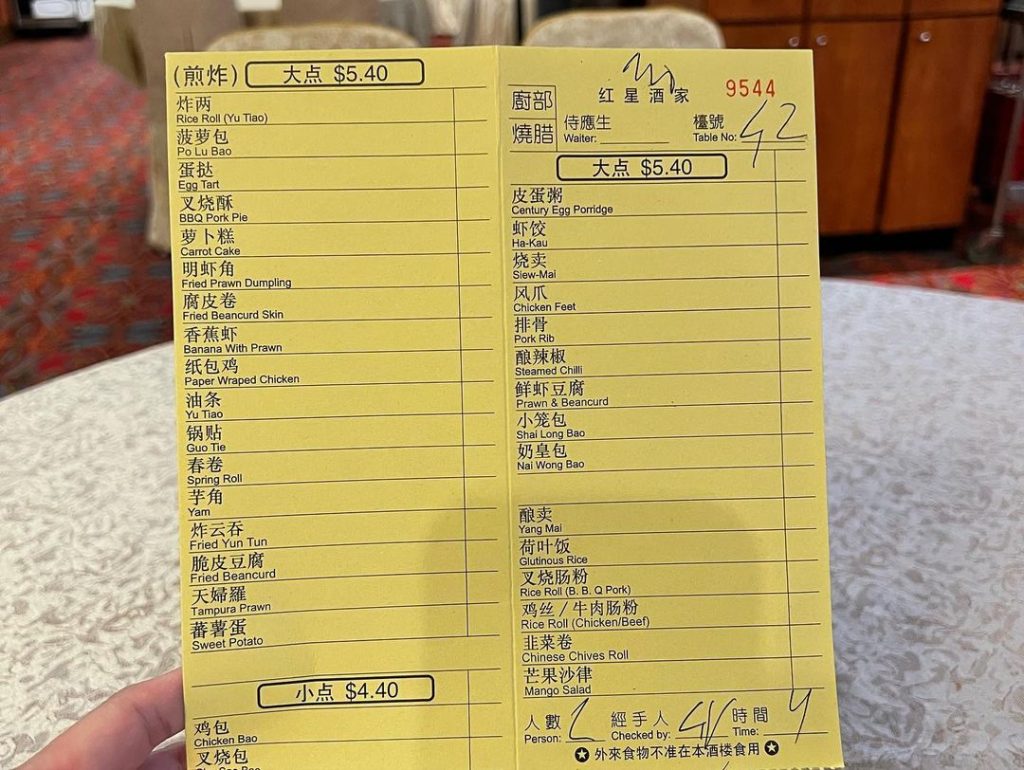 (煎炸) 大点 $5.40
炸两
Rice Roll (Yu Tiao)
菠萝包
Po Lu Bao
蛋挞
Egg Tart
叉烧酥
BBQ Pork Pie
萝卜糕
Carrot Cake
明虾角
Fried Prawn Dumpling
腐皮卷
Fried Beancurd Skin
香蕉虾
Banana With Prawn
纸包鸡
Paper Wraped Chicken
油条
Yu Tiao
锅贴
Guo Tie
春卷
Spring Roll
芋角
Yam
炸云吞
Fried Yun Tun
脆皮豆腐
Fried Beancurd
天婦羅
Tampura Prawn
蕃薯蛋
Sweet Potato
小点 $4.40
鸡包
Chicken Bao
叉烧包
廚部
燒腊
红星酒家
9544
侍應生
Waiter:
檯號
Table No: 42
大点 $5.40
皮蛋粥
Century Egg Porridge
虾饺
Ha-Kau
烧卖
Siew-Mai
风爪
Chicken Feet
排骨
Pork Rib
酿辣椒
Steamed Chilli
鲜虾豆腐
Prawn & Beancurd
小笼包
Shai Long Bao
奶皇包
Nai Wong Bao
酿卖
Yang Mai
荷叶饭
Glutinous Rice
叉烧肠粉
Rice Roll (B. B. Q Pork)
鸡丝/牛肉肠粉
Rice Roll (Chicken/Beef)
韭菜卷
Chinese Chives Roll
芒果沙律
Mango Salad
人數 經手人 時間
Person: Checked by: Time:
✪ 外來食物不准在本酒楼食用 ✪